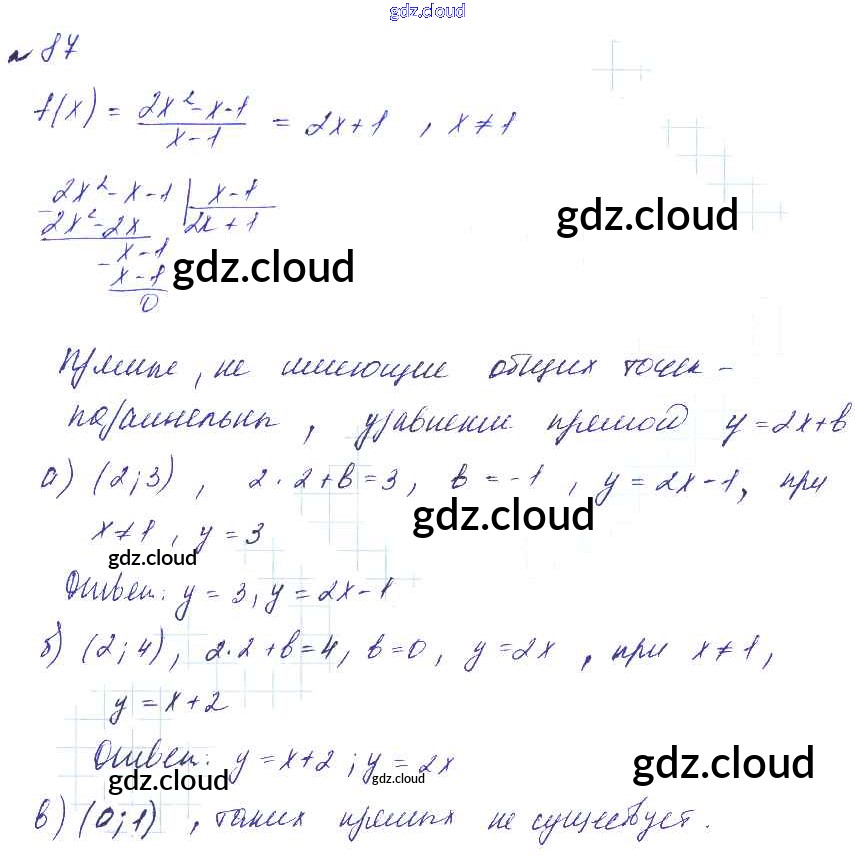 gdz.cloud
№ 87
f(x) = (2x² - x - 1)/(x - 1) = 2x + 1 , x ≠ 1
2x² - x - 1 | x - 1
2x² - 2x | 2x + 1
gdz.cloud
- x - 1
x - 1
gdz.cloud
0
Прямые, не имеющие общих точек -
параллельны, уравнение прямой y = 2x + b
а) (2;3) , 2·2 + b = 3, b = -1 , y = 2x - 1, при
gdz.cloud
x ≠ 1 , y = 3
gdz.cloud
Ответ: y = 3, y = 2x - 1
б) (2;4), 2·2 + b = 4, b = 0, y = 2x , при x ≠ 1,
y = x + 2
Ответ: y = x + 2 ; y = 2x
gdz.cloud gdz.cloud gdz.cloud
в) (0;1) , таких прямых не существует.